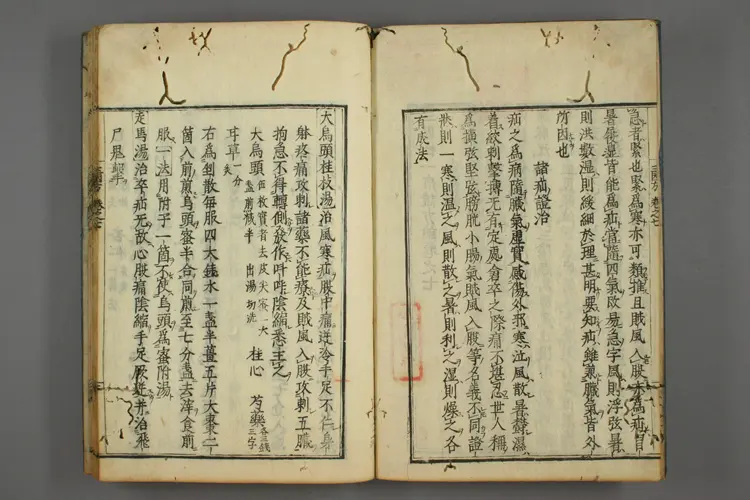 急者緊也緊爲寒亦可類推且賊風入腹亦爲疝自
暑徒虛皆能爲疝當隨四氣改易急字風則浮弦暑
則洪數濕則緩細於理甚明要知疝雖兼臟氣皆外
所因也
諸疝證治
疝之爲病隨臟氣虛實感傷外邪寒泣風散暑鬱濕
着故刺擊摶無有定處倉卒之際痛不堪忍世人稱
爲橫弦竪弦膀胱小腸氣賊風入腹等名義不同證
狀則一寒則温之風則散之暑則利之濕則燥之各
有成法
大烏頭桂枝湯治風寒疝腹中痛逆冷手足不仁身
躰疼痛攻刺諸藥不能療及賊風入腹攻刺五臟
拘急不得轉側發作叫呼陰縮悉主之
大烏頭 桂心 芍藥
甘草一分
右爲剉散每服四大錢水一盞半薑五片大棗二
箇入前煎烏頭蜜半合同煎至七分盞去滓食前
服一法用附子一箇不使烏頭爲蜜附湯
走馬湯治卒疝无故心腹痛陰縮手足厥逆并治飛
尸鬼擊